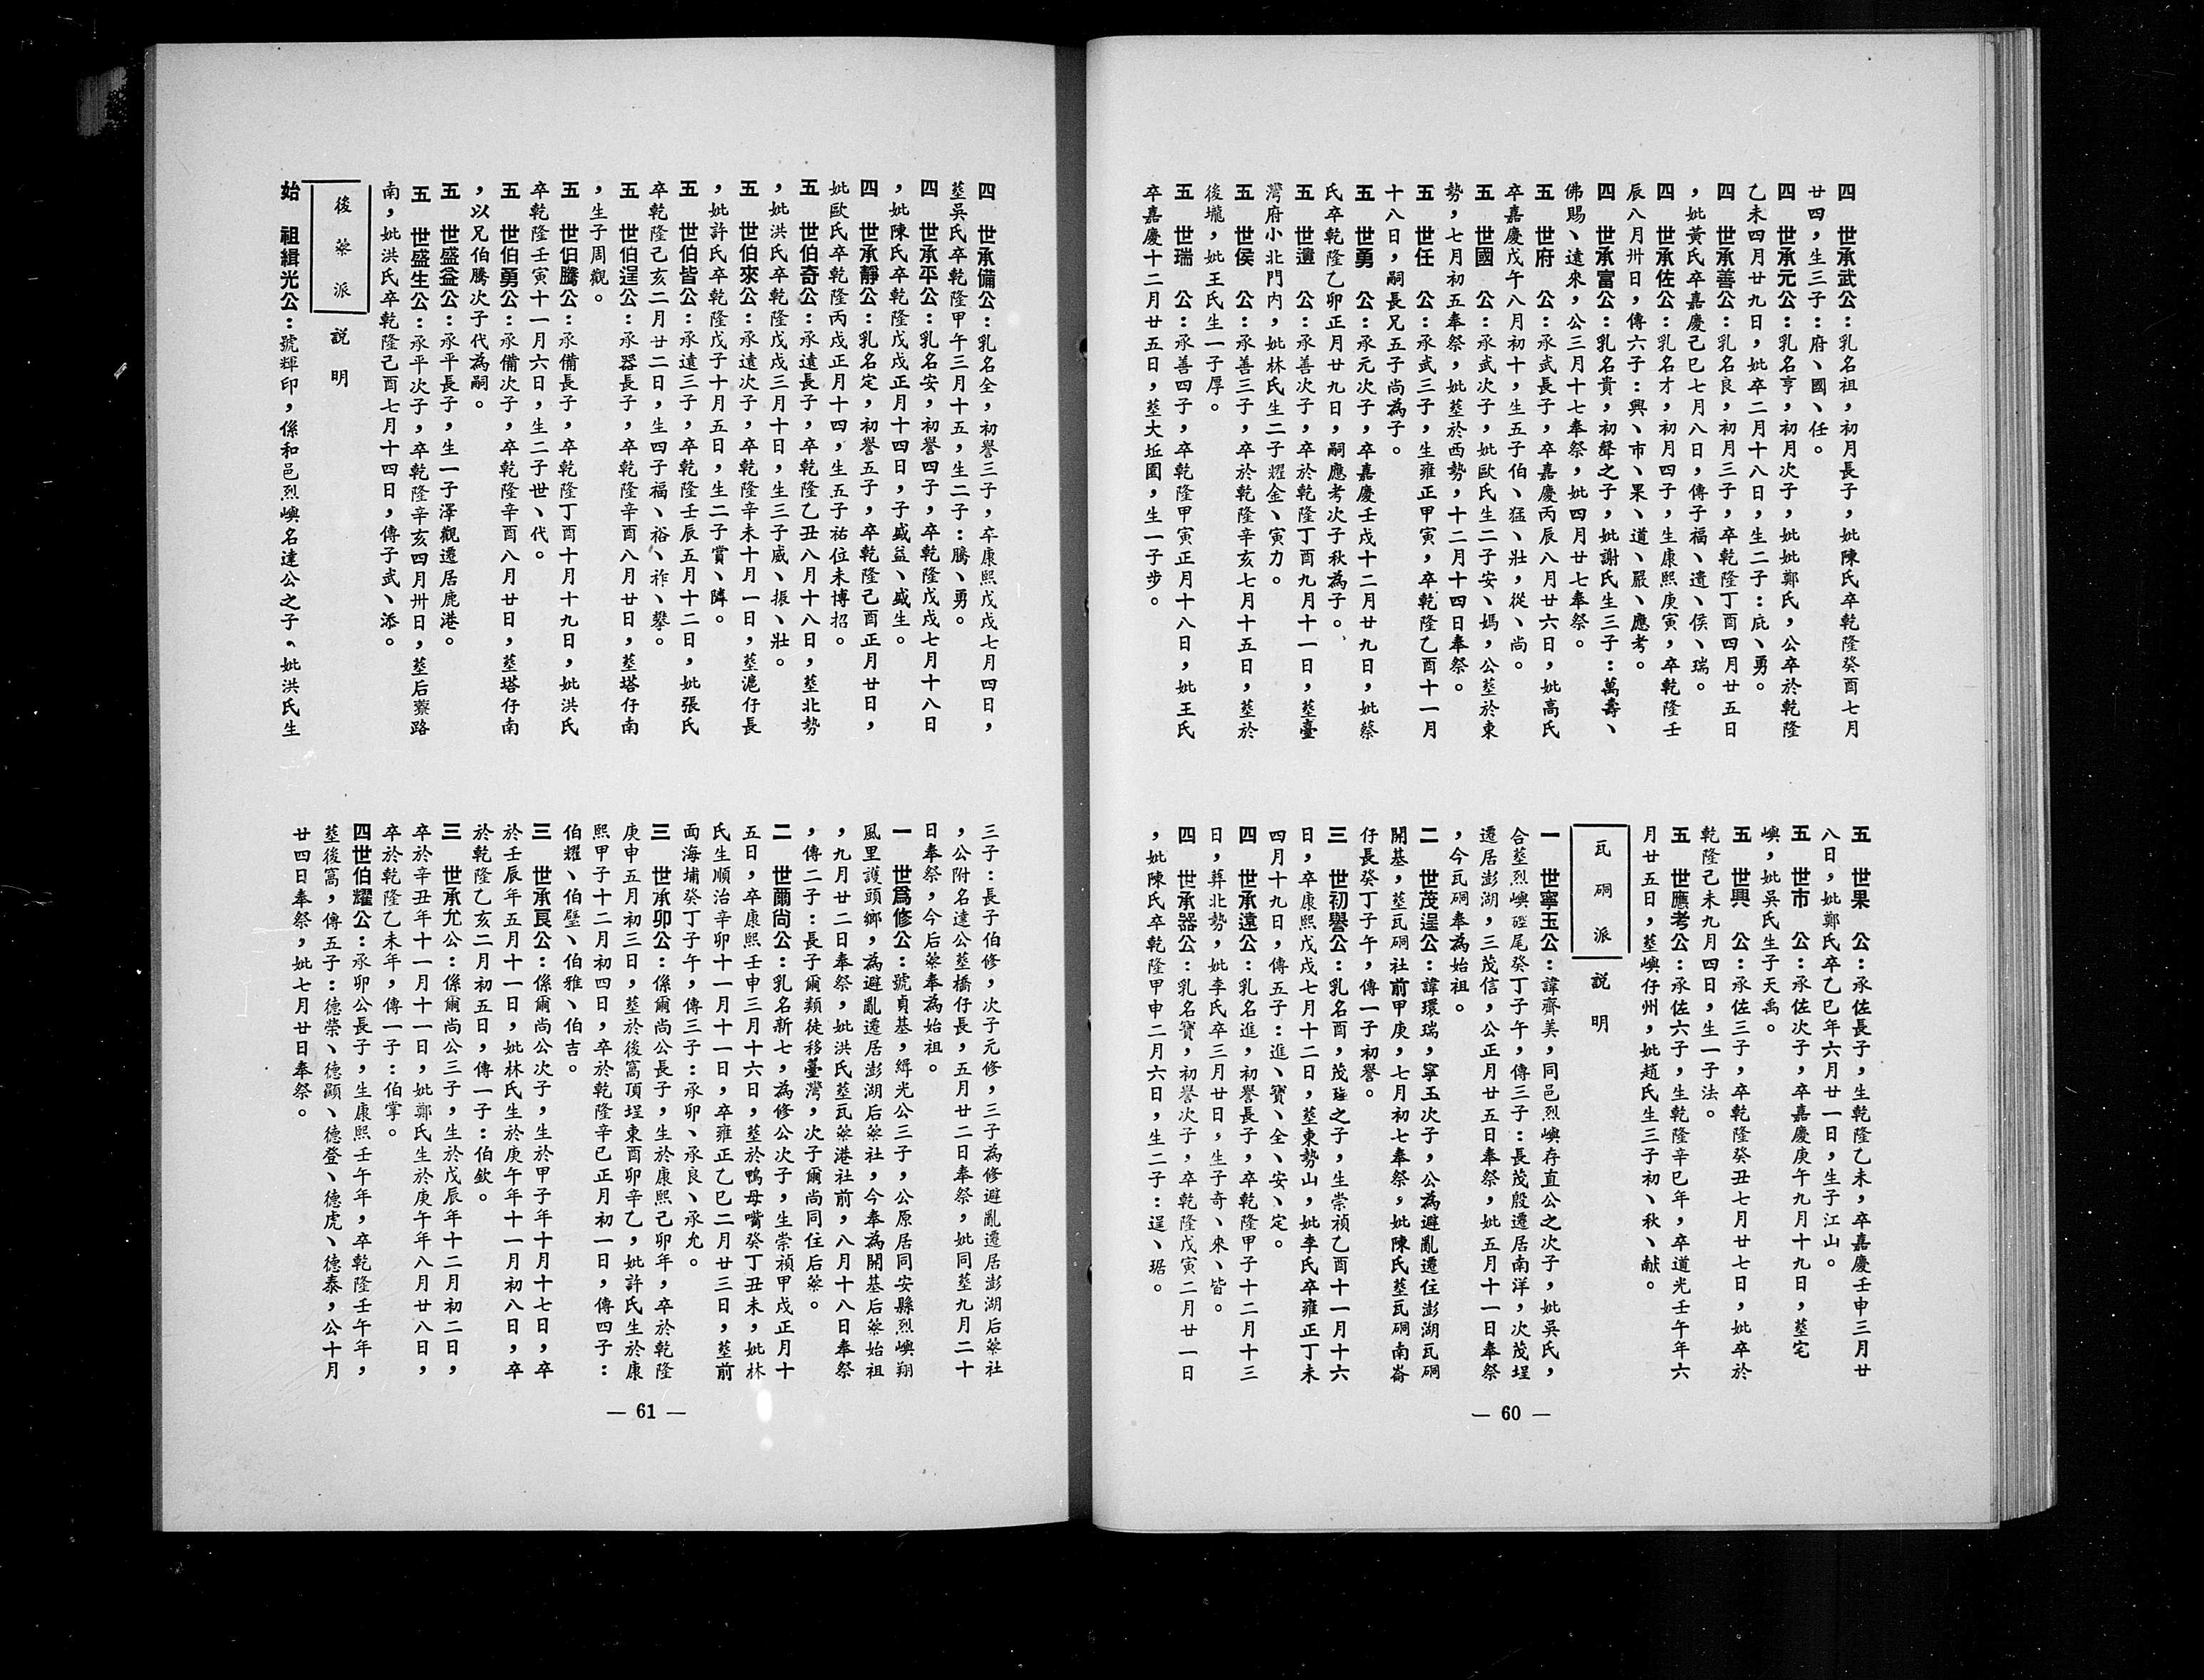 四　世承武公：乳名祖，初月長子，妣陳氏卒乾隆癸酉七月
廿四，生三子：府、國、任。
四　世承元公：乳名亨，初月次子，妣妣鄭氏，公卒於乾隆
乙未四月廿九日，妣卒二月十八日，生二子：庇、勇。
四　世承善公：乳名良，初月三子，卒乾隆丁酉四月廿五日
，妣黃氏卒嘉慶己巳七月八日，傳子福、遺、侯、瑞。
四　世承佐公：乳名才，初月四子，生康熙庚寅，卒乾隆壬
辰八月卅日，傳六子：興、市、果、道、嚴、應考。
四　世承富公：乳名貴，初聲之子，妣謝氏生三子：萬壽、
佛賜、遠來，公三月十七奉祭，妣四月廿七奉祭。
五　世府　公：承武長子，卒嘉慶丙辰八月廿六日，妣高氏
卒嘉慶戊午八月初十，生五子伯、猛、壯，從、尚。
五　世國　公：承武次子，妣歐氏生二子安、媽，公塟於東
勢，七月初五奉祭，妣塟於西勢，十二月十四日奉祭。
五　世任　公：承武三子，生雍正甲寅，卒乾隆乙酉十一月
十八日，嗣長兄五子尚為子。
五　世勇　公：承元次子，卒嘉慶壬戌十二月廿九日，妣蔡
氏卒乾隆乙卯正月廿九日，嗣應考次子秋為子。
五　世遺　公：承善次子，卒於乾隆丁酉九月十一日，塟臺
灣府小北門內，妣林氏生二子耀金、寅力。
五　世侯　公：承善三子，卒於乾隆辛亥七月十五日，塟於
後壠，妣王氏生一子厚。
五　世瑞　公：承善四子，卒乾隆甲寅正月十八日，妣王氏
卒嘉慶十二月廿五日，塟大坵園，生一子步。
五　世果　公：承佐長子，生乾隆乙未，卒嘉慶壬申三月廿
八日，妣鄭氏卒乙巳年六月廿一日，生子江山。
五　世市　公：承佐次子，卒嘉慶庚午九月十九日，塟宅
嶼，妣吳氏生子天禹。
五　世興　公：承佐三子，卒乾隆癸丑七月廿七日，妣卒於
乾隆己未九月四日，生一子法。
五　世應考公：承佐六子，生乾隆辛巳年，卒道光壬午年六
月廿五日，塟嶼仔州，妣趙氏生三子初、秋、献。
瓦硐派　說明
一　世寧玉公：諱齊美，同邑烈嶼存直公之次子，妣吳氏，
合塟烈嶼磴尾癸丁子午，傳三子：長茂殷遷居南洋，次茂埕
遷居澎湖，三茂信，公正月廿五日奉祭，妣五月十一日奉祭
，今瓦硐奉為始祖。
二　世茂逞公：諱環瑞，寧玉次子，公為避亂遷住澎湖瓦硐
開基，塟瓦硐社前甲庚，七月初七奉祭，妣陳氏塟瓦硐南崙
仔長癸丁子午，傳一子初譽。
三　世初譽公：乳名酉，茂珵之子，生崇禎乙酉十一月十六
日，卒康熙戊戌七月十二日，塟東勢山，妣李氏卒雍正丁未
四月十九日，傳五子：進、寶、全、安、定。
四　世承遠公：乳名進，初譽長子，卒乾隆甲子十二月十三
日，葬北勢，妣李氏卒三月廿日，生子奇、來、皆。
四　世承器公：乳名寶，初譽次子，卒乾隆戊寅二月廿一日
，妣陳氏卒乾隆甲申二月六日，生二子：逞、琚。
— 60 —
四　世承備公：乳名全，初譽三子，卒康熙戊戌七月四日，
塟吳氏卒乾隆甲午三月十五，生二子：騰、勇。
四　世承平公：乳名安，初譽四子，卒乾隆戊戌七月十八日
，妣陳氏卒乾隆戊戌正月十四日，子盛益、盛生。
四　世承靜公：乳名定，初譽五子，卒乾隆己酉正月廿日，
妣歐氏卒乾隆丙戌正月十四，生五子祐位未博招。
五　世伯奇公：承遠長子，卒乾隆乙丑八月十八日，塟北勢
，妣洪氏卒乾隆戊戌三月十日，生三子威、振、壯。
五　世伯來公：承遠次子，卒乾隆辛未十月一日，塟滬仔長
，妣許氏卒乾隆戊子十月五日，生二子賞、隣。
五　世伯皆公：承遠三子，卒乾隆壬辰五月十二日，妣張氏
卒乾隆己亥二月廿二日，生四子福、裕、祚、攀。
五　世伯逞公：承器長子，卒乾隆辛酉八月廿日，塟塔仔南
，生子周觀。
五　世伯騰公：承備長子，卒乾隆丁酉十月十九日，妣洪氏
卒乾隆壬寅十一月六日，生二子世、代。
五　世伯勇公：承備次子，卒乾隆辛酉八月廿日，塟塔仔南
，以兄伯騰次子代為嗣。
五　世盛益公：承平長子，生一子澤觀遷居鹿港。
五　世盛生公：承平次子，卒乾隆辛亥四月卅日，塟后藔路
南，妣洪氏卒乾隆己酉七月十四日，傳子武、添。
後藔派　說明
始　祖緝光公：號輝印，係和邑烈嶼名達公之子。妣洪氏生
三子：長子伯修，次子元修，三子為修避亂遷居澎湖后藔社
，公附名達公塟橋仔長，五月廿二日奉祭，妣同塟九月二十
日奉祭，今后藔奉為始祖。
一　世爲修公：號貞基，緝光公三子，公原居同安縣烈嶼翔
風里護頭鄉，為避亂遷居澎湖后藔社，今奉為開基后藔始祖
，九月廿二日奉祭，妣洪氏塟瓦藔港社前，八月十八日奉祭
，傳二子：長子爾類徒移臺灣，次子爾尚同住后藔。
二　世爾尚公：乳名新七，為修公次子，生崇禎甲戌正月十
五日，卒康熙壬申三月十六日，塟於鴨母嘴癸丁丑未，妣林
氏生順治辛卯十一月十一日，卒雍正乙巳二月廿三日，塟前
面海埔癸丁子午，傳三子：承卯、承良、承允。
三　世承卯公：係爾尚公長子，生於康熙己卯年，卒於乾隆
庚申五月初三日，塟於後窩頂埕東酉卯辛乙，妣許氏生於康
熙甲子十二月初四日，卒於乾隆辛已正月初一日，傳四子：
伯耀、伯璧、伯雅、伯吉。
三　世承良公：係爾尚公次子，生於甲子年十月十七日，卒
於壬辰年五月十一日，妣林氏生於庚午年十一月初八日，卒
於乾隆乙亥二月初五日，傳一子：伯欽。
三　世承允公：係爾尚公三子，生於戊辰年十二月初二日，
卒於辛丑年十一月十一日，妣鄭氏生於庚午年八月廿八日，
卒於乾隆乙未年，傳一子：伯掌。
四世伯耀公：承卯公長子，生康熙壬午年，卒乾隆壬午年，
塟後窩，傳五子：德榮、德顯、德登、德虎、德泰，公十月
廿四日奉祭，妣七月廿日奉祭。
— 61 —